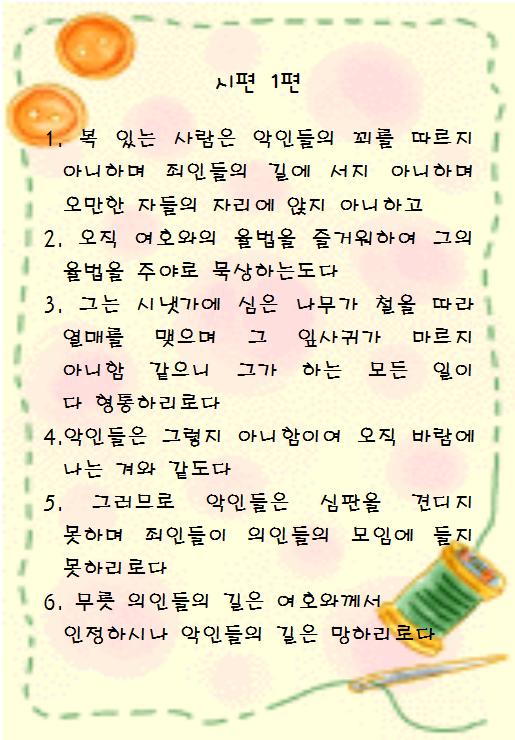 시편 1편
1. 복 있는 사람은 악인들의 꾀를 따르지
아니하며 죄인들의 길에 서지 아니하며
오만한 자들의 자리에 앉지 아니하고
2. 오직 여호와의 율법을 즐거워하여 그의
율법을 주야로 묵상하는도다
3. 그는 시냇가에 심은 나무가 철을 따라
열매를 맺으며 그 잎사귀가 마르지
아니함 같으니 그가 하는 모든 일이
다 형통하리로다
4.악인들은 그렇지 아니함이여 오직 바람에
나는 겨와 같도다
5. 그러므로 악인들은 심판을 견디지
못하며 죄인들이 의인들의 모임에 들지
못하리로다
6. 무릇 의인들의 길은 여호와께서
인정하시나 악인들의 길은 망하리로다